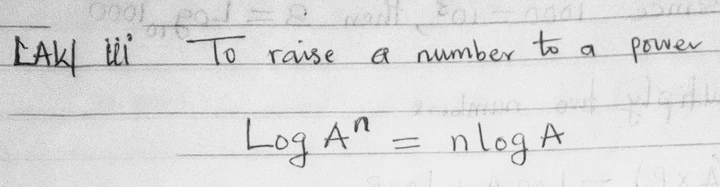 LAK iii To raise a number to a power
Log Aⁿ = n log A